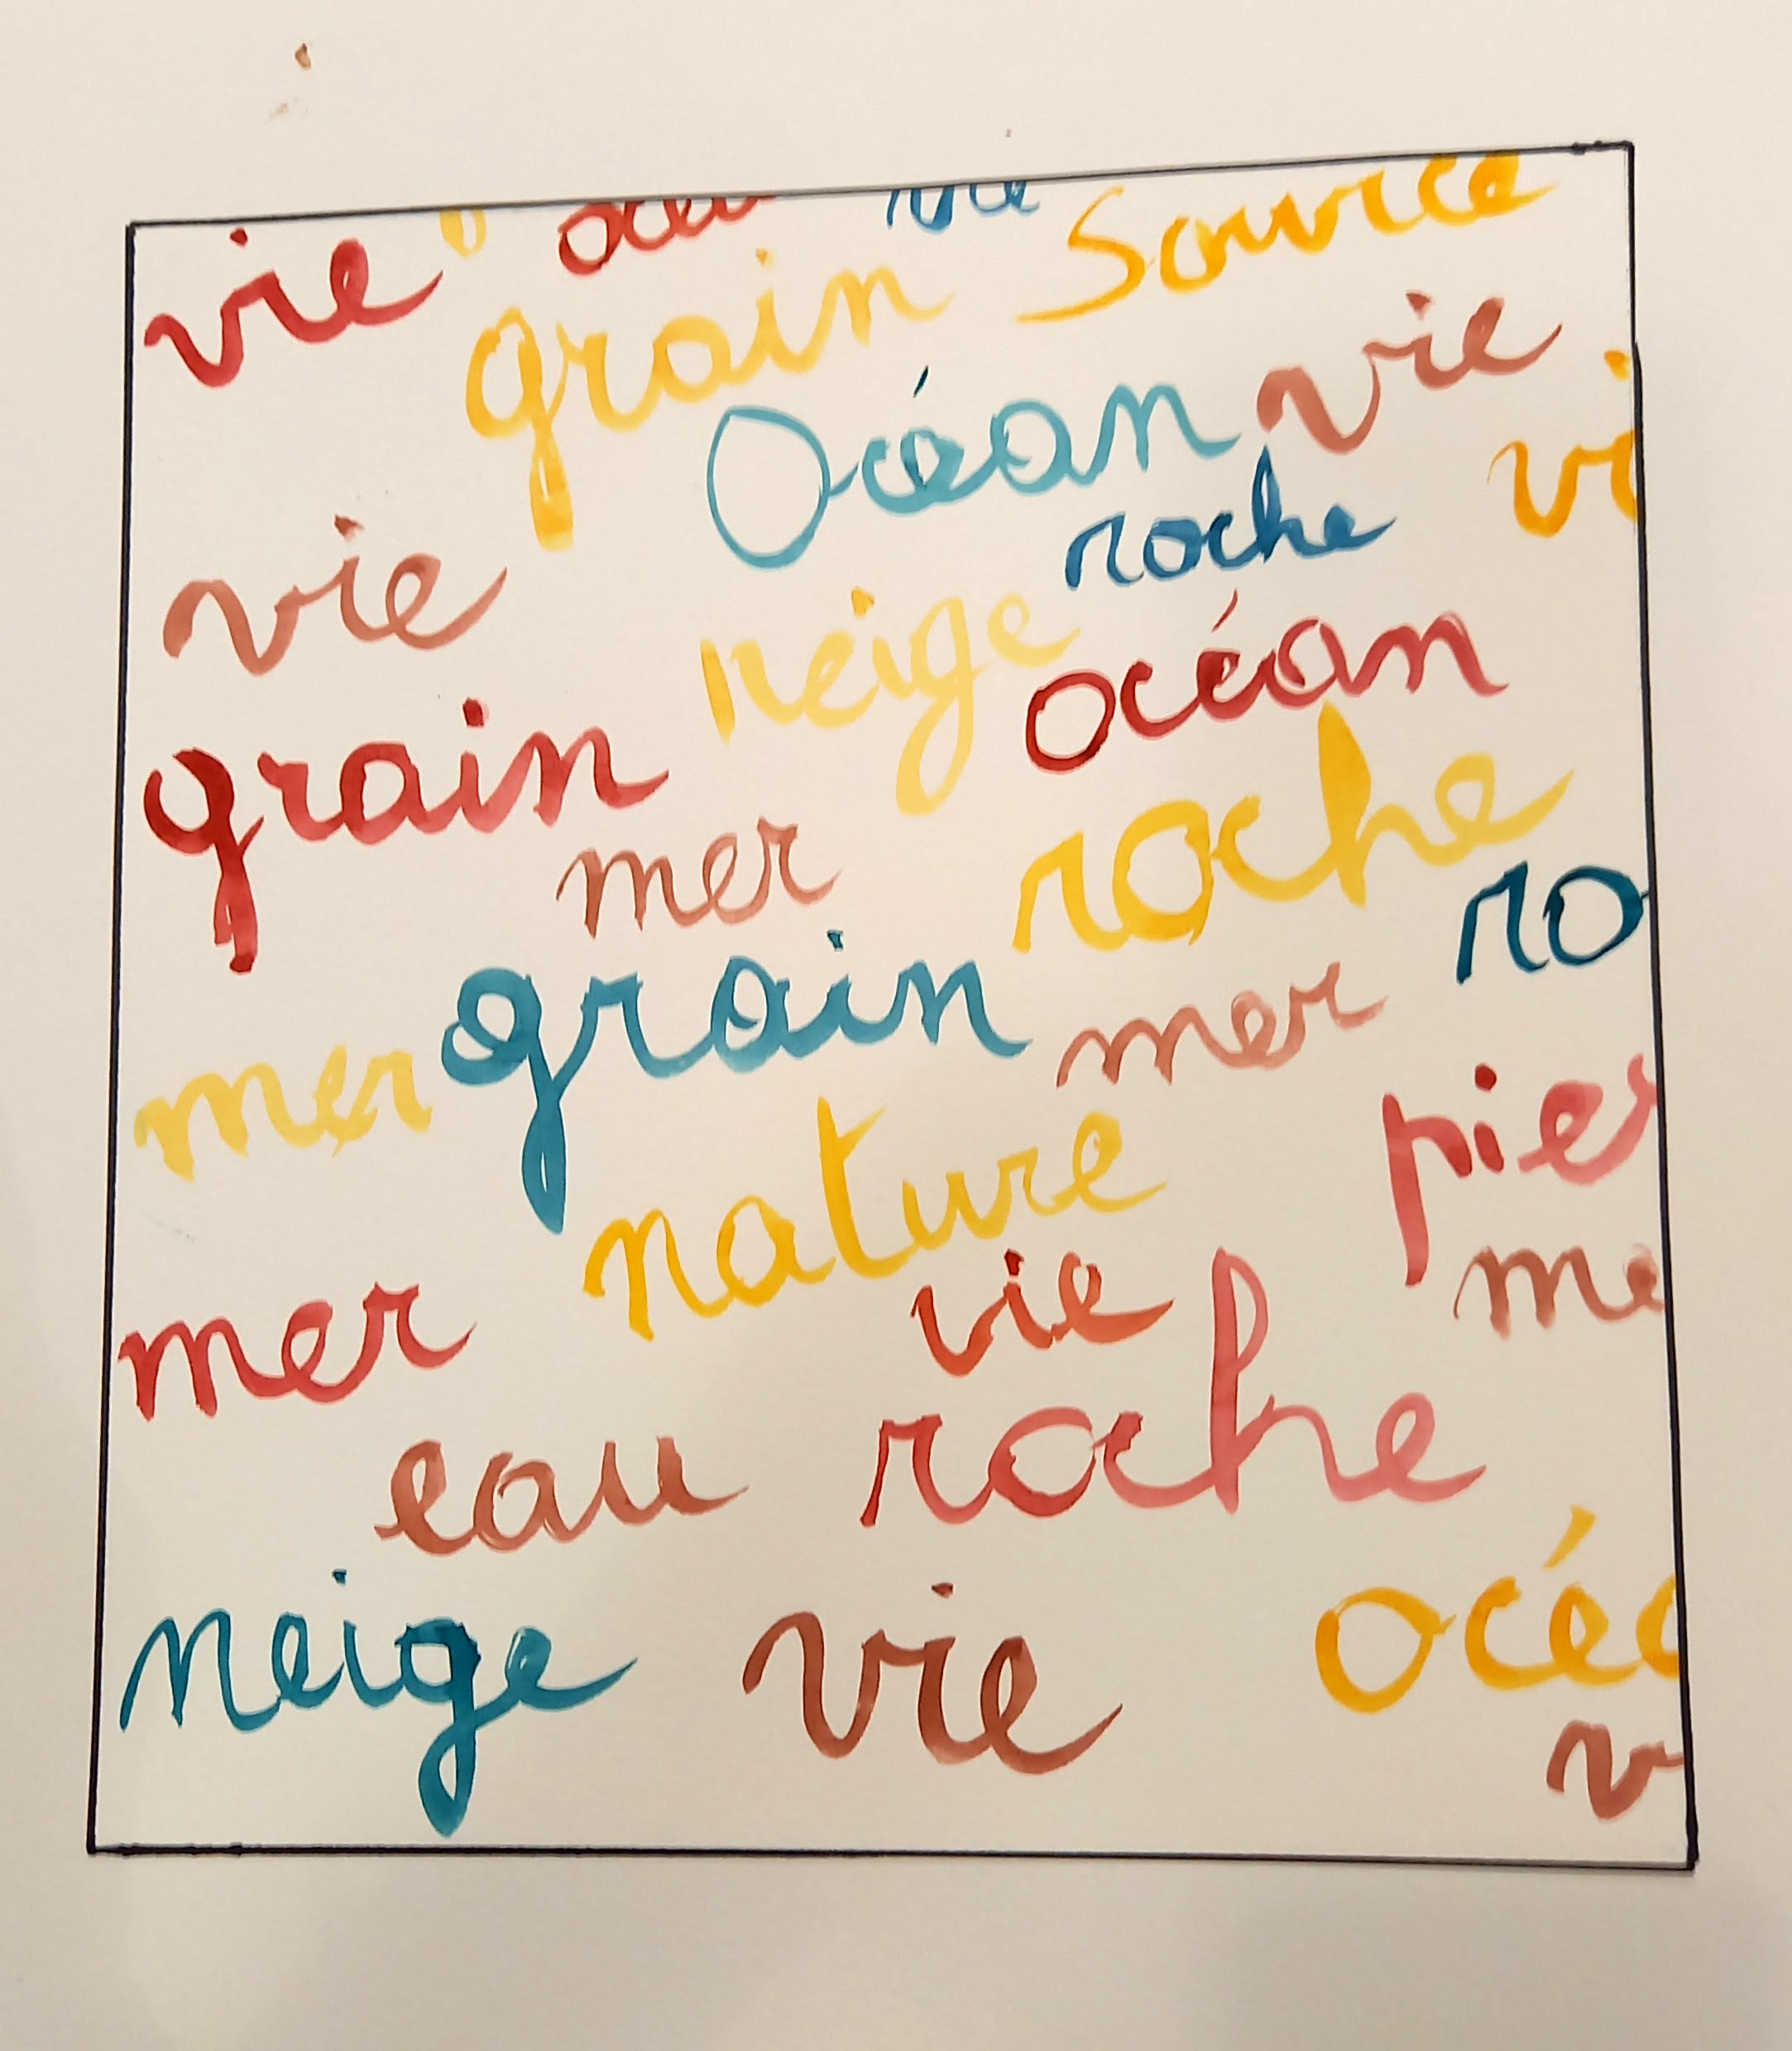 vie océa vie source
grain
vie
Océan
vi
roche
vie
neige
océan
grain
roche
mer
ro
grain
mer
mer
pier
nature
me
vie
mer
roche
eau
océa
neige
vie
v